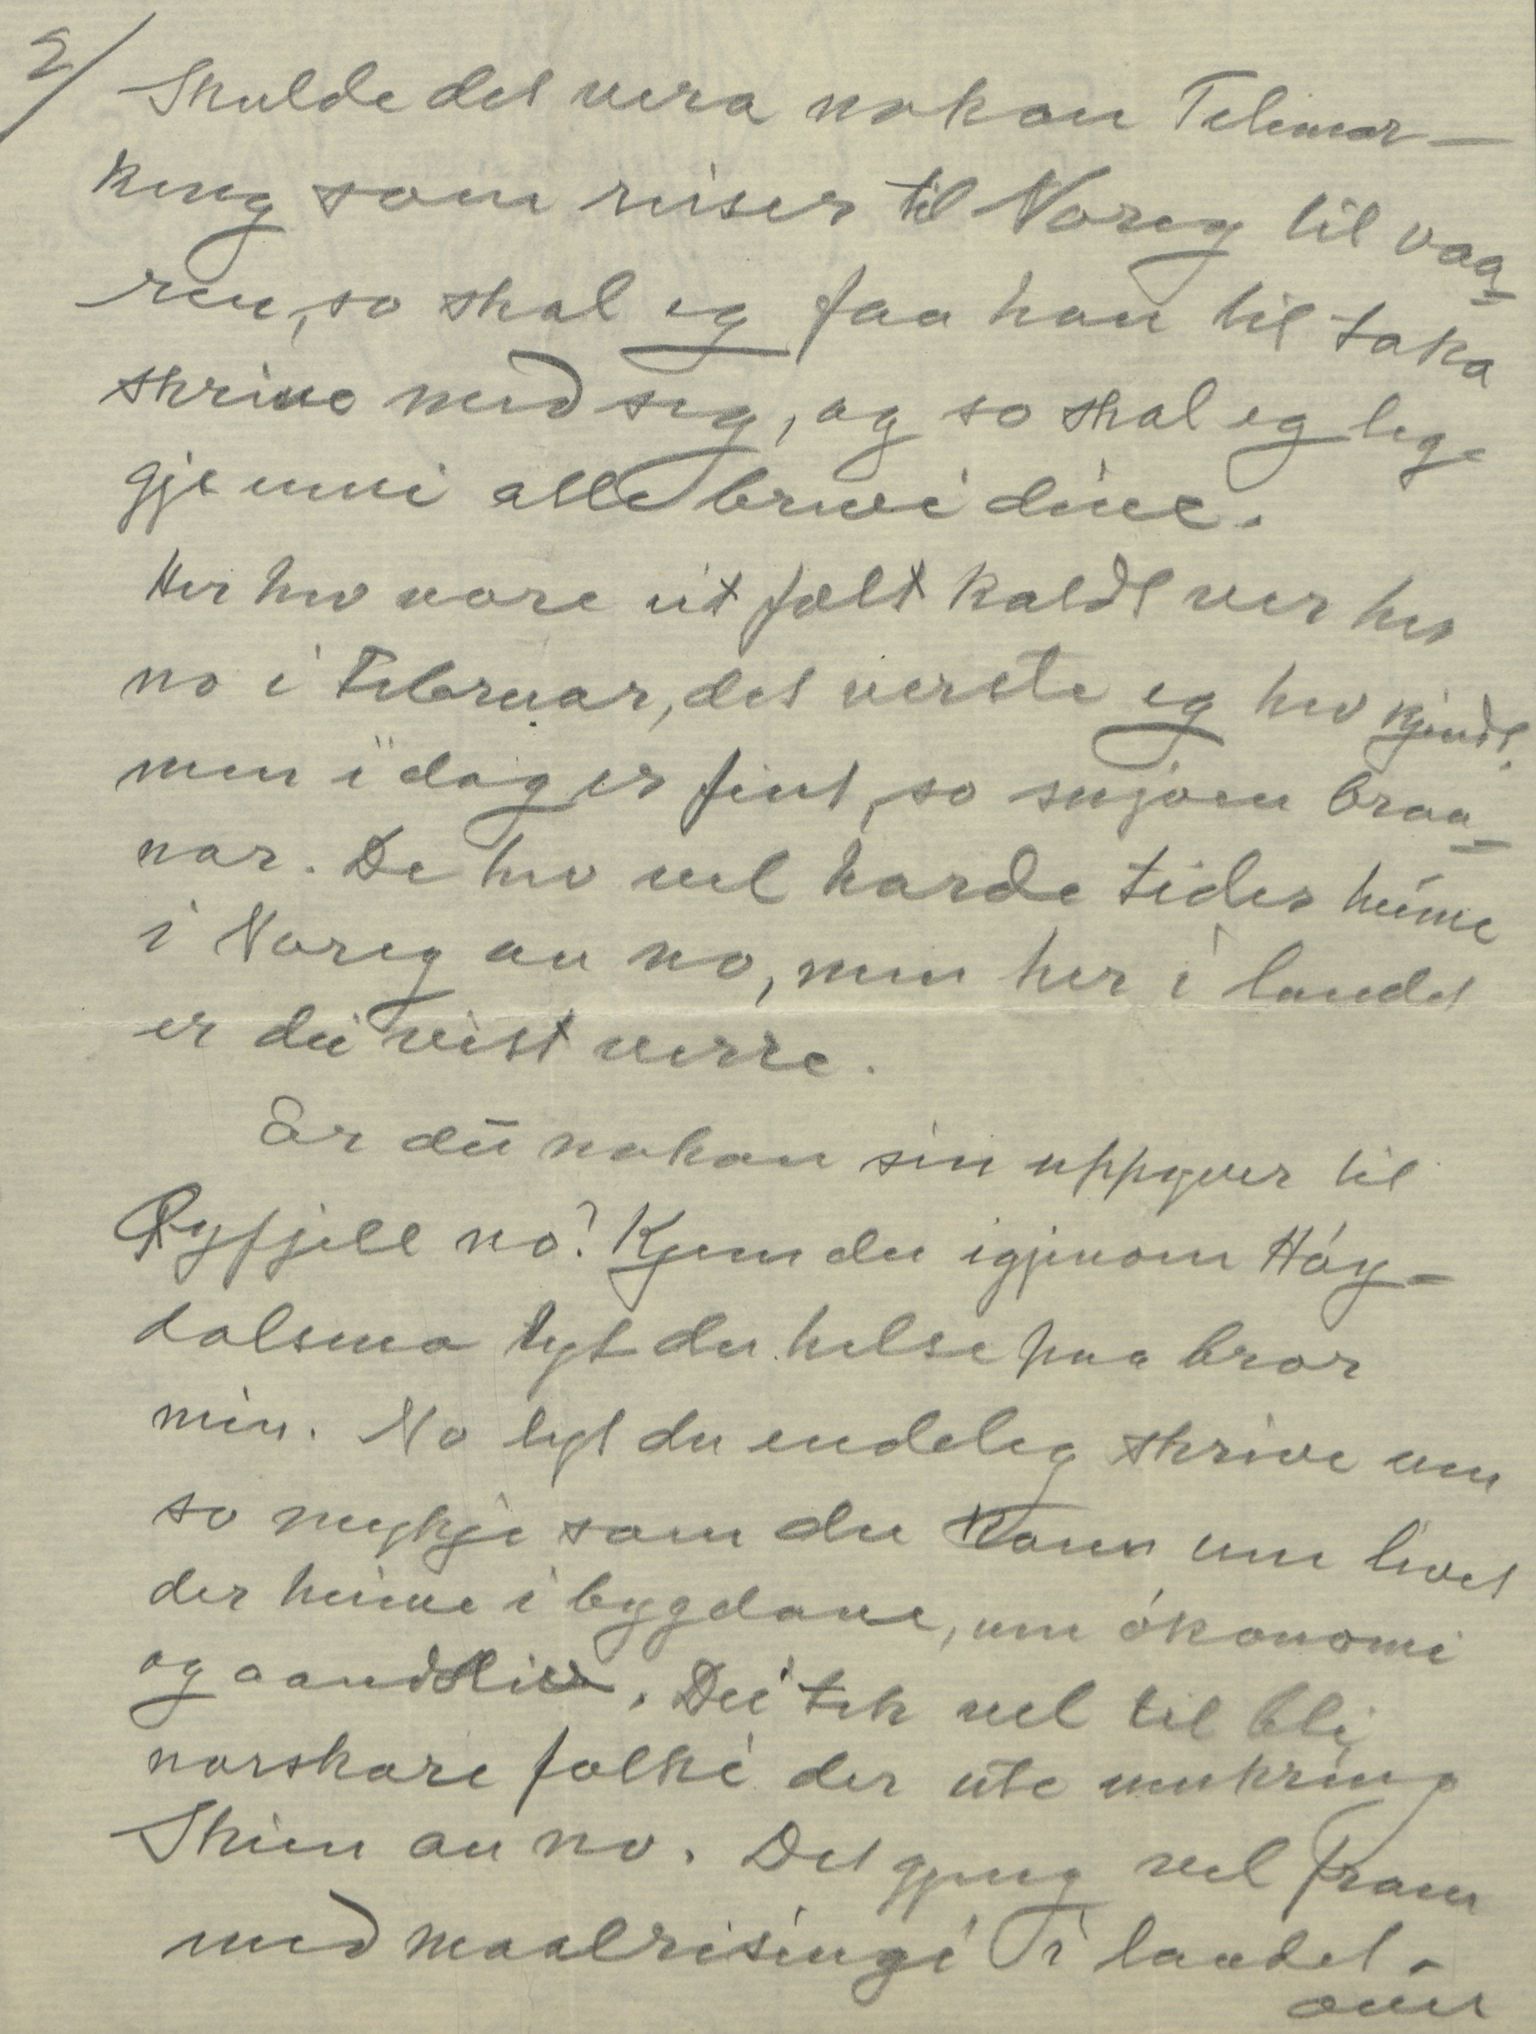 2/
Skulde det vera nokon Telemar-
king som reiser til Noreg til vaa-
ren, so skal eg faa han til taka
skrine med seg, og so skal eg leg-
gje unni alle brevi dine.
Her hev vore eit fælt kaldt ver her
no i Februar, det verste eg hev kjendt,
men i dag er fint, so snjoen braa-
nar. De hev vel harde tider heime
i Noreg au no, men her i landet
er dei vist verre.
Er du nokon sin uppyver til
Øyfjell no? Kjem du igjenom Høy-
dalsmo lyt du helse paa bror
min. No lyt du endeleg skrive um
so mykje som du kann um livet
der heime i bygdane, um økonomi
og aandsliv. Dei tek vel til bli
norskare folki der ute umkring
Skien au no. Det gjeng vel fram
med maalreisingi i landet.
over